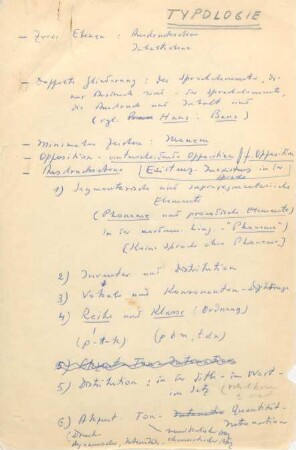 TYPOLOGIE
- Zwei Ebenen : Ausdrucksebene
Inhaltsebene
- Doppelte Gliederung : der Sprachelemente, die
nur Ausdruck sind - der Sprachelemente,
die Ausdruck und Inhalt sind
(vgl. Haus : Baus)
- Minimales Zeichen : Monem
- Opposition - Opposition
- Ausdrucksebene in der
Sprache
1) Segmentarische und suprasegmentarische
Elemente
(Phoneme und prosodische Elemente)
in der Ling. - "Phoneme"
(Keine Sprache ohne Phoneme)
2) Inventar und Distribution
3) Vokale und Konsonanten
4) Reihe und Klasse (Ordnung)
(p-t-k) (p b m, t d n)
5) Distribution : in der Silbe - im Wort -
im Satz
6) Akzent Ton - Quantität -
Intonation
(Druck